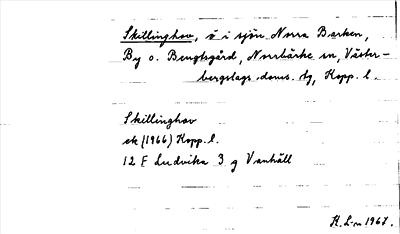 Skillinghov, ö i sjön Norra Barken,
By o. Bengtsgård, Norrbärke sn, Väster-
bergslags doms. tg, Kopp. l.
Skillinghov
ek (1966) Kopp. l.
12 F Ludvika 3 g Vanhäll
H. L-n 1967.